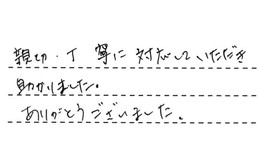 親切・丁寧に対応していただき
助かりました。
ありがとうございました。